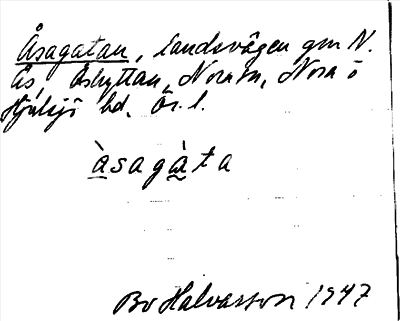 Åsagatan, landsvägen gm N.
Ås, Åshyttan, Nora sn, Nora o
Hjulsjö bd. Ör. l.
àsagàta
Bo Halvarson 1947